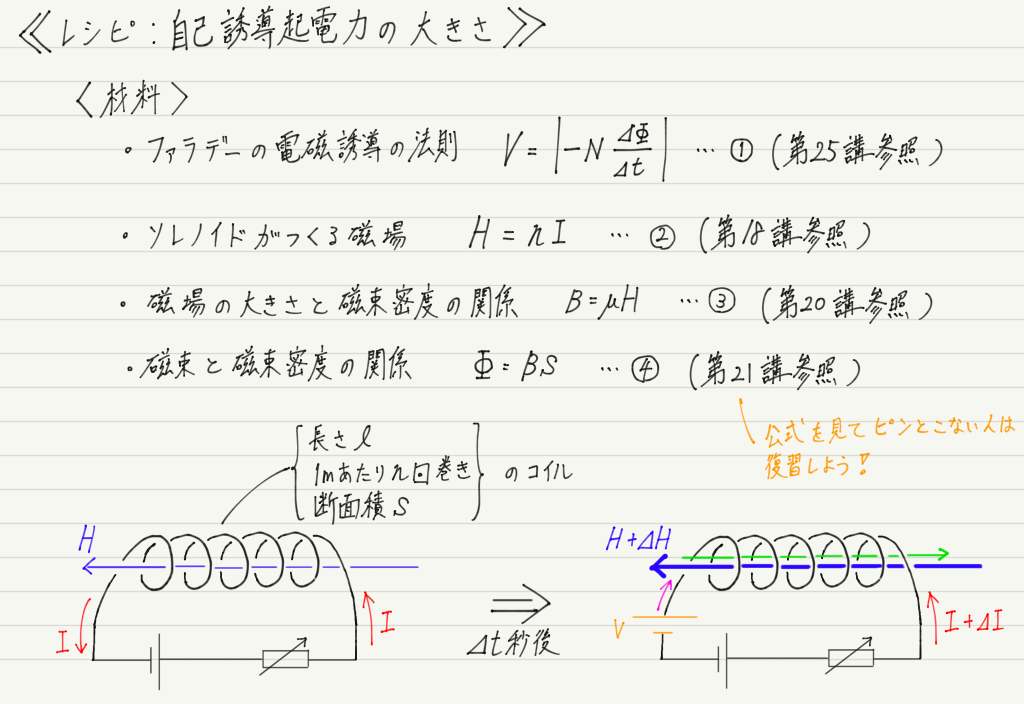 ≪レシピ：自己誘導起電力の大きさ≫
〈材料〉
・ファラデーの電磁誘導の法則 V=|-N ΔΦ/Δt| … ① (第25講参照)
・ソレノイドがつくる磁場 H=nI … ② (第18講参照)
・磁場の大きさと磁束密度の関係 B=μH … ③ (第20講参照)
・磁束と磁束密度の関係 Φ=BS … ④ (第21講参照)
公式を見てピンとこない人は
復習しよう!
長さl
1mあたりn回巻き のコイル
断面積S
H
I
I
⇒
Δt秒後
H+ΔH
V
I+ΔI